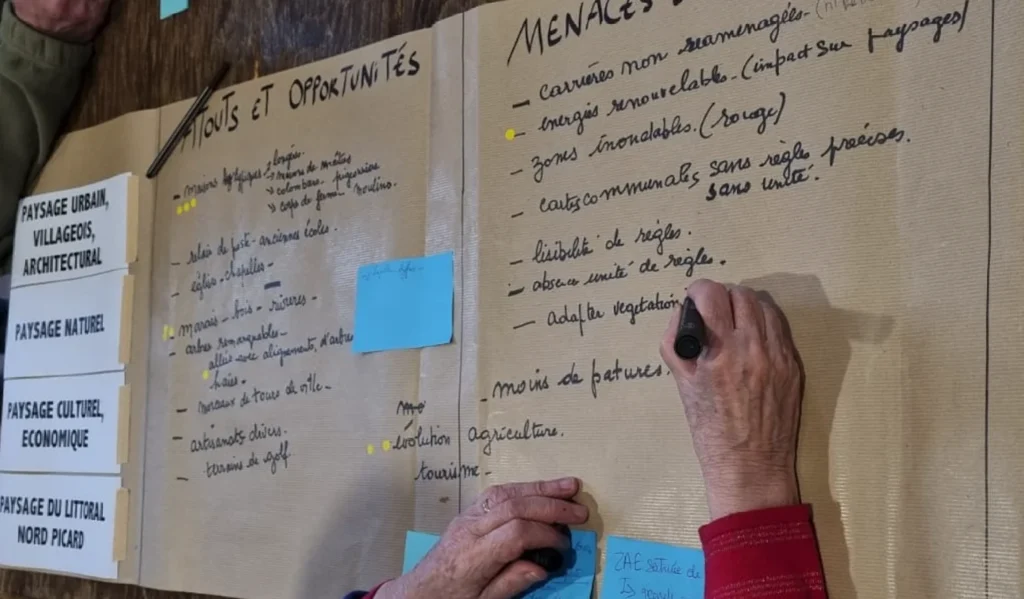 PAYSAGE URBAIN,
VILLAGEOIS,
ARCHITECTURAL
PAYSAGE NATUREL
PAYSAGE CULTUREL,
ECONOMIQUE
PAYSAGE DU LITTORAL
NORD PICARD
ATOUTS ET OPPORTUNITÉS
- maisons
longés.
colombiers. pigeonniers
corps de ferme. moulins.
- relais de poste - anciennes écoles.
- église - chapelles -
- marais - bois - rivières -
- arbres remarquables -
allées avec alignements, d'arbres
haies.
- morceaux de tours de ville.
- artisanats divers.
- terrains de golf.
MENACES
- carrières non reamenagées.
- énergies renouvelables - (impact sur paysages)
- zones inondables. (rouge)
- cartes communales sans règles précises.
sans unité.
- lisibilité de règles.
- absence unité de règles.
- adapter vegetation
- moins de patures.
mo
évolution agriculture.
tourisme -
ZAE
de